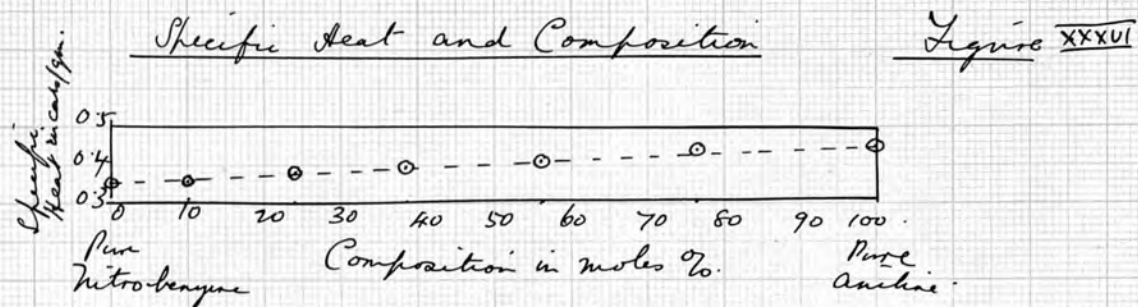 Specific Heat and Composition
Figure XXXVI
Specific
Heat in cals/gm.
0.5
0.4
0.3
0 10 20 30 40 50 60 70 80 90 100
Pure
Nitrobenzene
Composition in moles %.
Pure
Aniline.